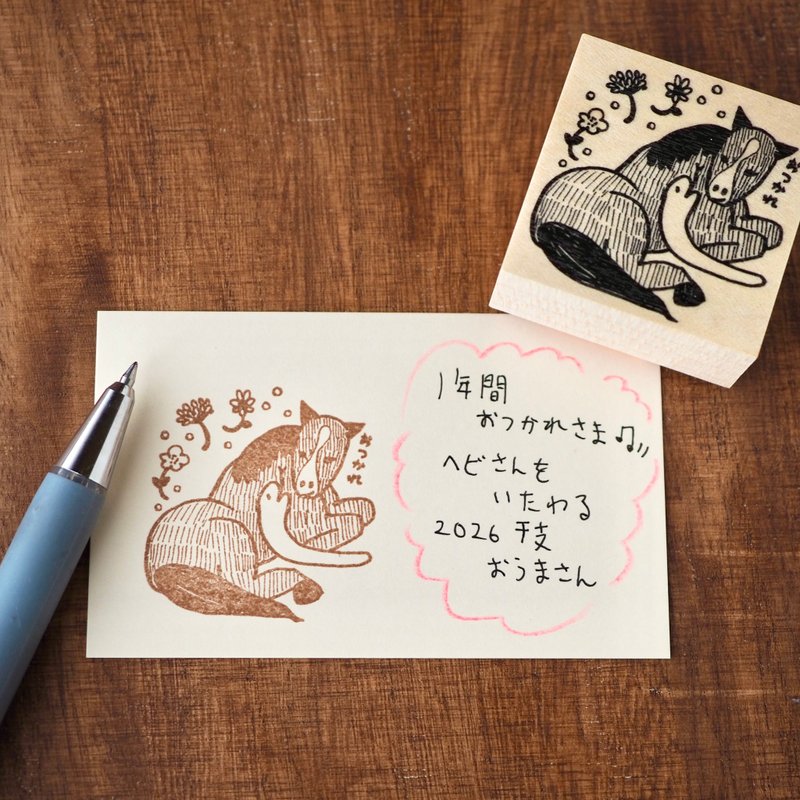 おつかれ
おつかれ
1年間
おつかれさま♫
ヘビさんを
いたわる
2026 干支
おうまさん